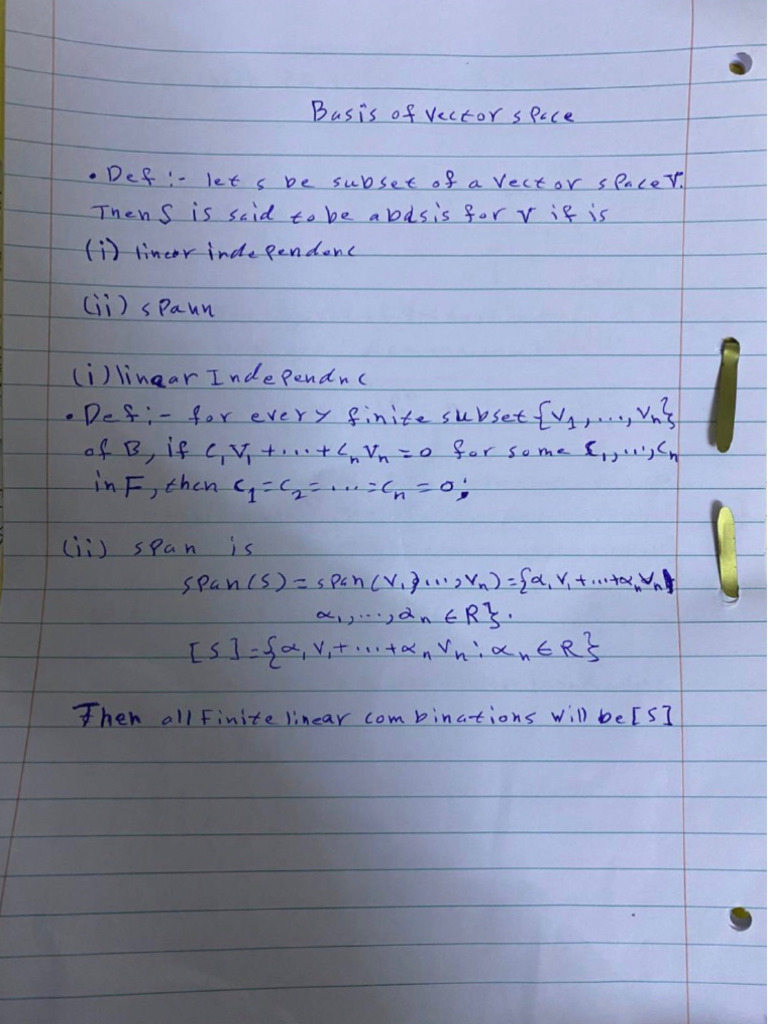 Basis of vector space
• Def :- let s be subset of a vector space V.
Then S is said to be abasis for V if is
(i) linear independenc
(ii) spann
(i) linear Independnc
• Def :- for every finite subset {V1, ..., Vn}
of B, if C1V1 + ... + CnVn = 0 for some C1, ..., Cn
in F, then C1 = C2 = ... = Cn = 0;
(ii) span is
span(S) = span(V1, ..., Vn) = {α1V1 + ... + αnVn
α1, ..., αn ∈ R}.
[S] = {α1V1 + ... + αnVn : αn ∈ R}
Then all Finite linear combinations will be [S]